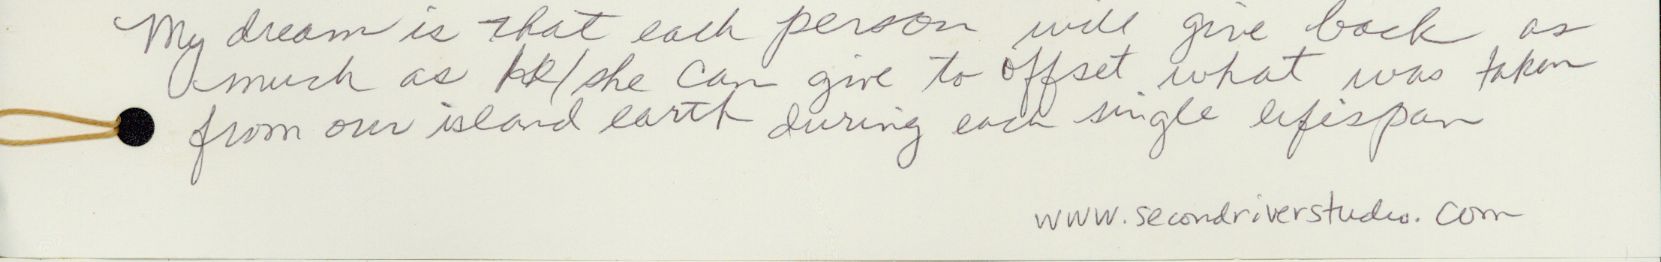 My dream is that each person will give back as
much as he/she can give to offset what was taken
from our island earth during each single lifespan
www.secondriverstudio.com